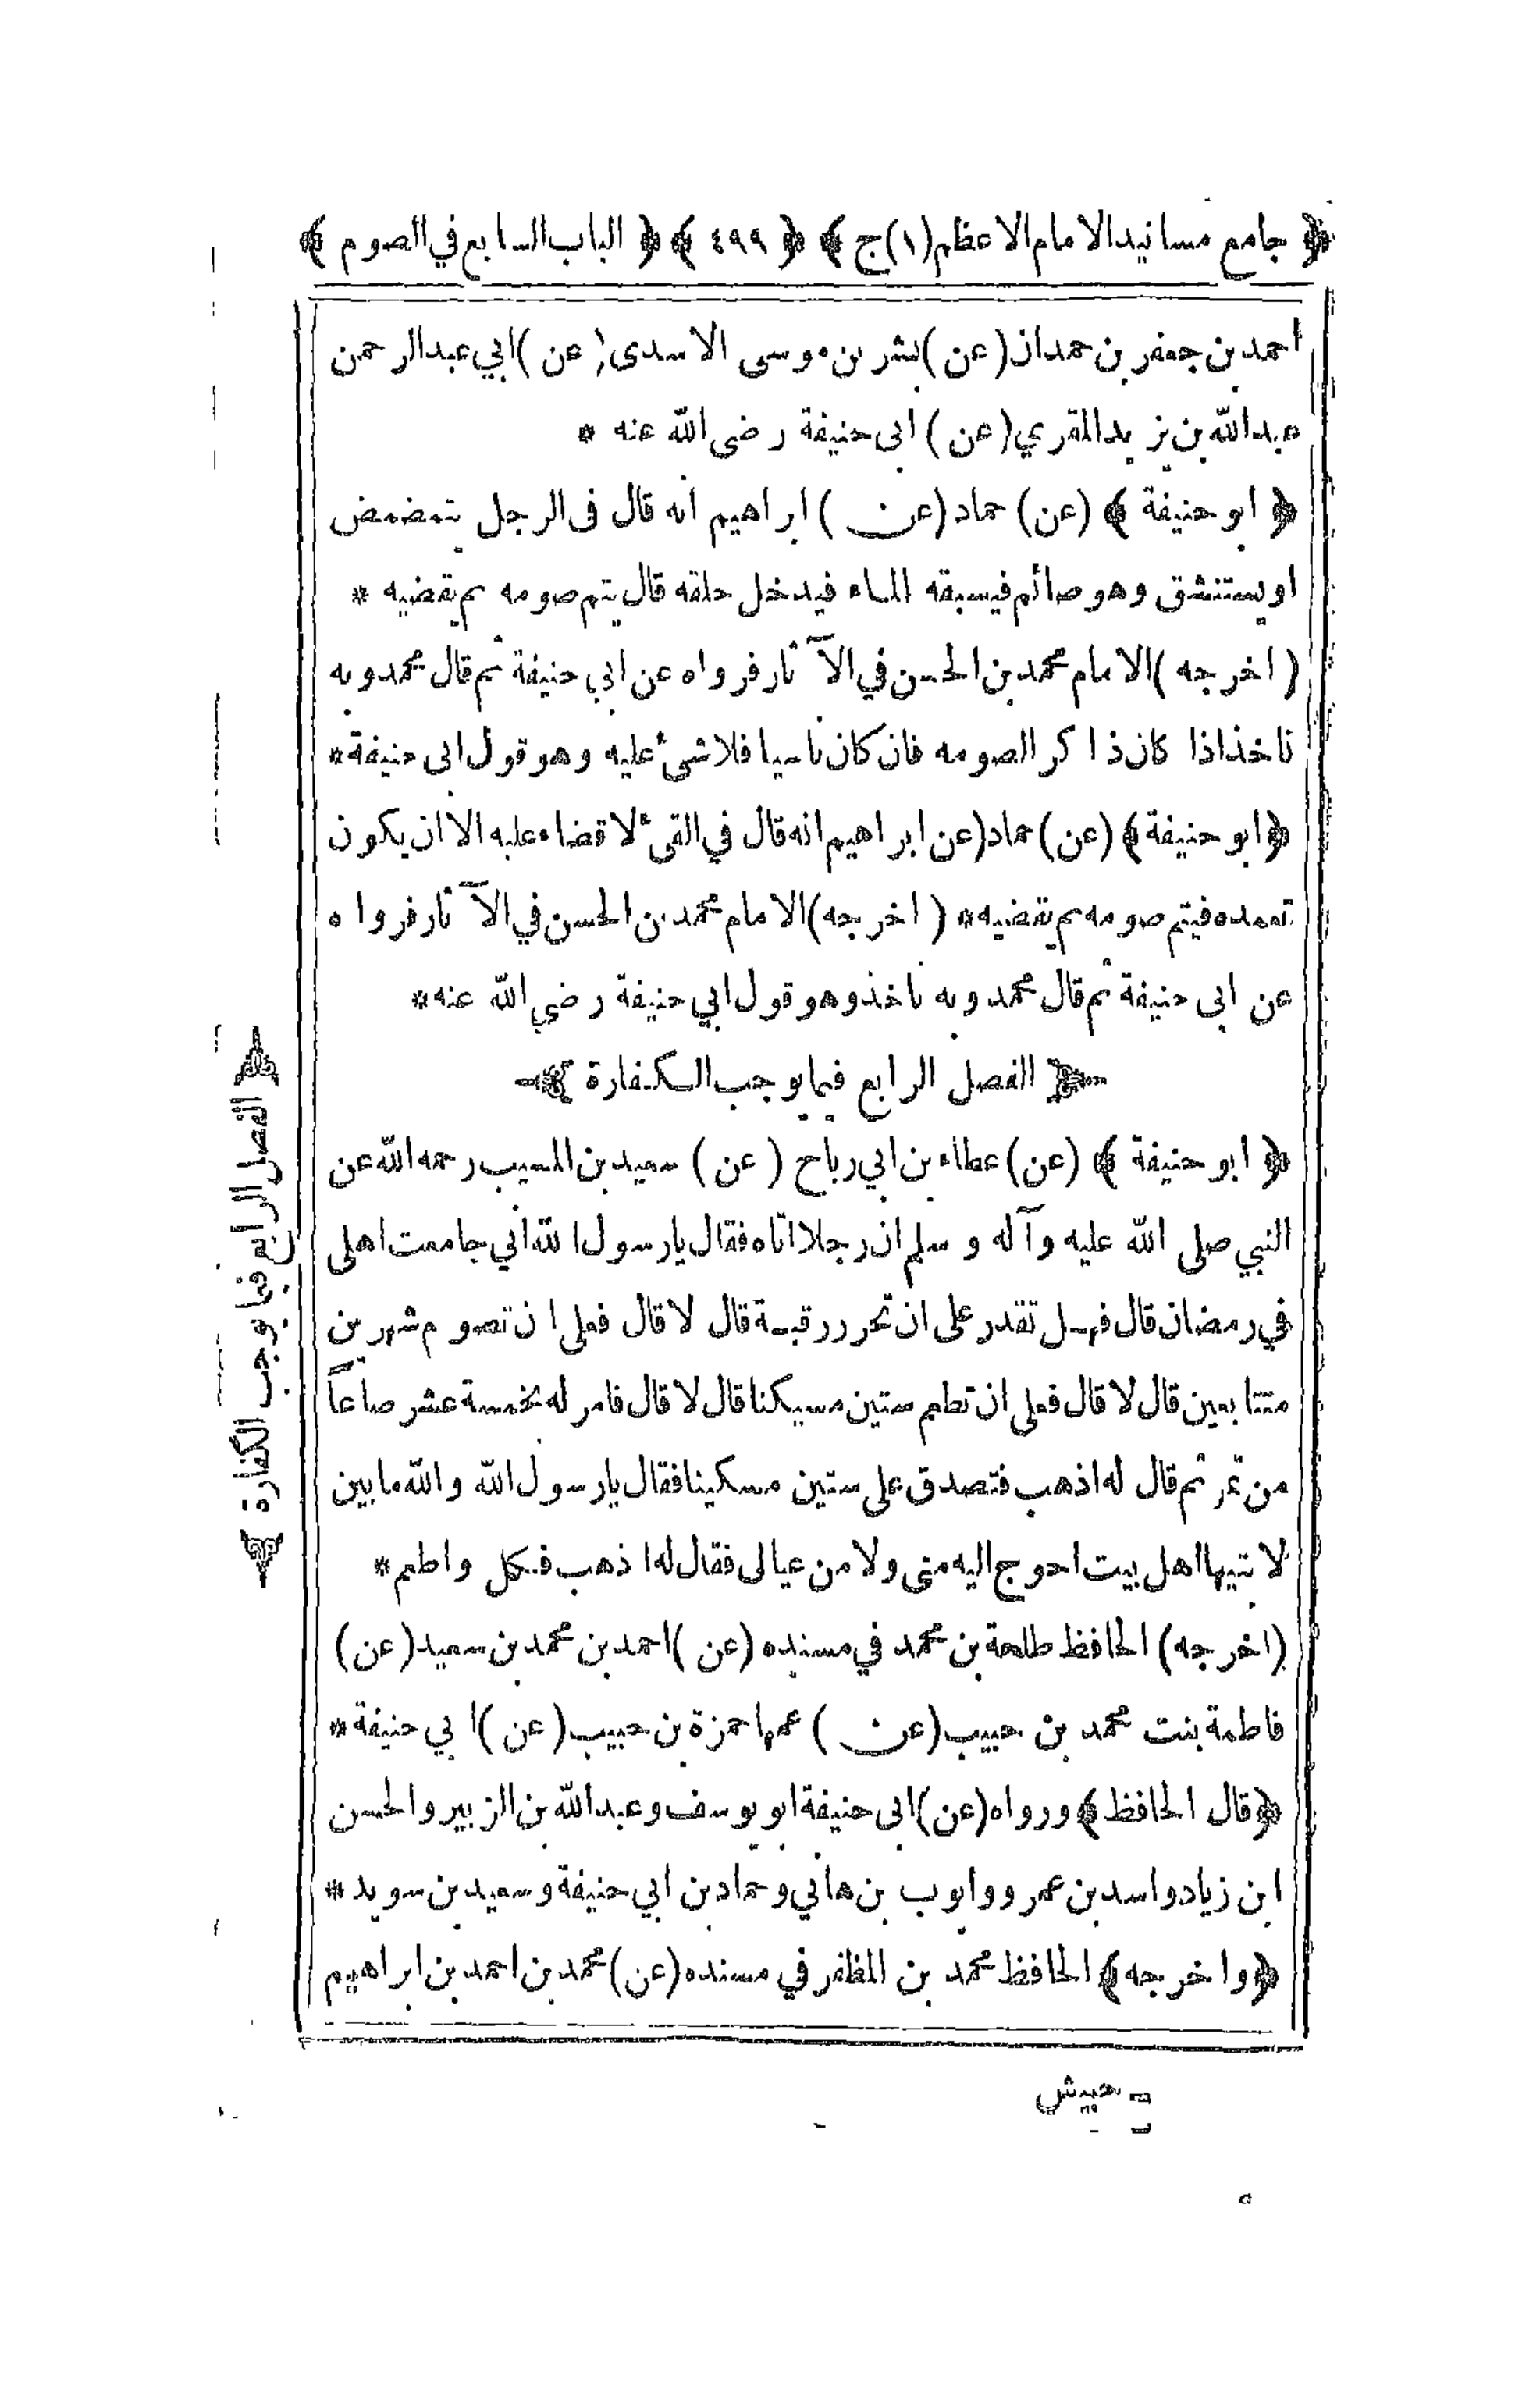 ﴿ جامع مسانيد الامام الاعظم (١) ج ﴾ ﴿ ٤٩٩ ﴾ ﴿ الباب السابع في الصوم ﴾
احمد بن جعفر بن حمدان (عن) بشر بن موسى الاسدى (عن) ابي عبد الرحمن
عبد الله بن يزيد المقري (عن) ابى حنيفة رضى الله عنه *
﴿ ابو حنيفة ﴾ (عن) حماد (عن) ابراهيم انه قال فى الرجل يتمضمض
او يستنشق وهو صائم فيسبقه الماء فيدخل حلقه قال يتم صومه ثم يقضيه *
(اخرجه) الامام محمد بن الحسن في الآثار فرواه عن ابي حنيفة ثم قال محمد وبه
ناخذ اذا كان ذاكر الصومه فان كان ناسيا فلاشئ عليه وهو قول ابى حنيفة *
﴿ابو حنيفة﴾ (عن) حماد (عن ابراهيم انه قال في القئ لا قضاء عليه الا ان يكون
تعمده فيتم صومه ثم يقضيه * (اخرجه) الامام محمد بن الحسن في الآثار فرواه
عن ابى حنيفة ثم قال محمد وبه ناخذ وهو قول ابي حنيفة رضي الله عنه *
﴿ الفصل الرابع فيما يوجب الكفارة ﴾
﴿ ابو حنيفة ﴾ (عن) عطاء بن ابي رباح (عن) سعيد بن المسيب رحمه الله عن
النبي صلى الله عليه وآله وسلم ان رجلا اتاه فقال يا رسول الله اني جامعت اهلى
في رمضان قال فهل تقدر على ان تحرر رقبة قال لا قال فعلى ان تصوم شهرين
متتابعين قال لا قال فعلى ان تطعم ستين مسيكنا قال لا قال فامر له بخمسة عشر صاعاً
من تمر ثم قال له اذهب فتصدق على ستين مسكينا فقال يا رسول الله والله ما بين
لابتيها اهل بيت احوج اليه منى ولا من عيالى فقال له اذهب فكل واطعم *
(اخرجه) الحافظ طلحة بن محمد في مسنده (عن) احمد بن محمد بن سعيد (عن)
فاطمة بنت محمد بن حبيب (عن) عمها حمزة بن حبيب (عن) ابي حنيفة *
﴿قال الحافظ﴾ ورواه (عن) ابى حنيفة ابو يوسف وعبد الله بن الزبير والحسن
ابن زياد واسد بن عمرو وايوب بن هاني وحماد بن ابي حنيفة وسعيد بن سويد *
﴿واخرجه﴾ الحافظ محمد بن المظفر في مسنده (عن) محمد بن احمد بن ابراهيم
﴿ الفصل الرابع فيما يوجب الكفارة ﴾